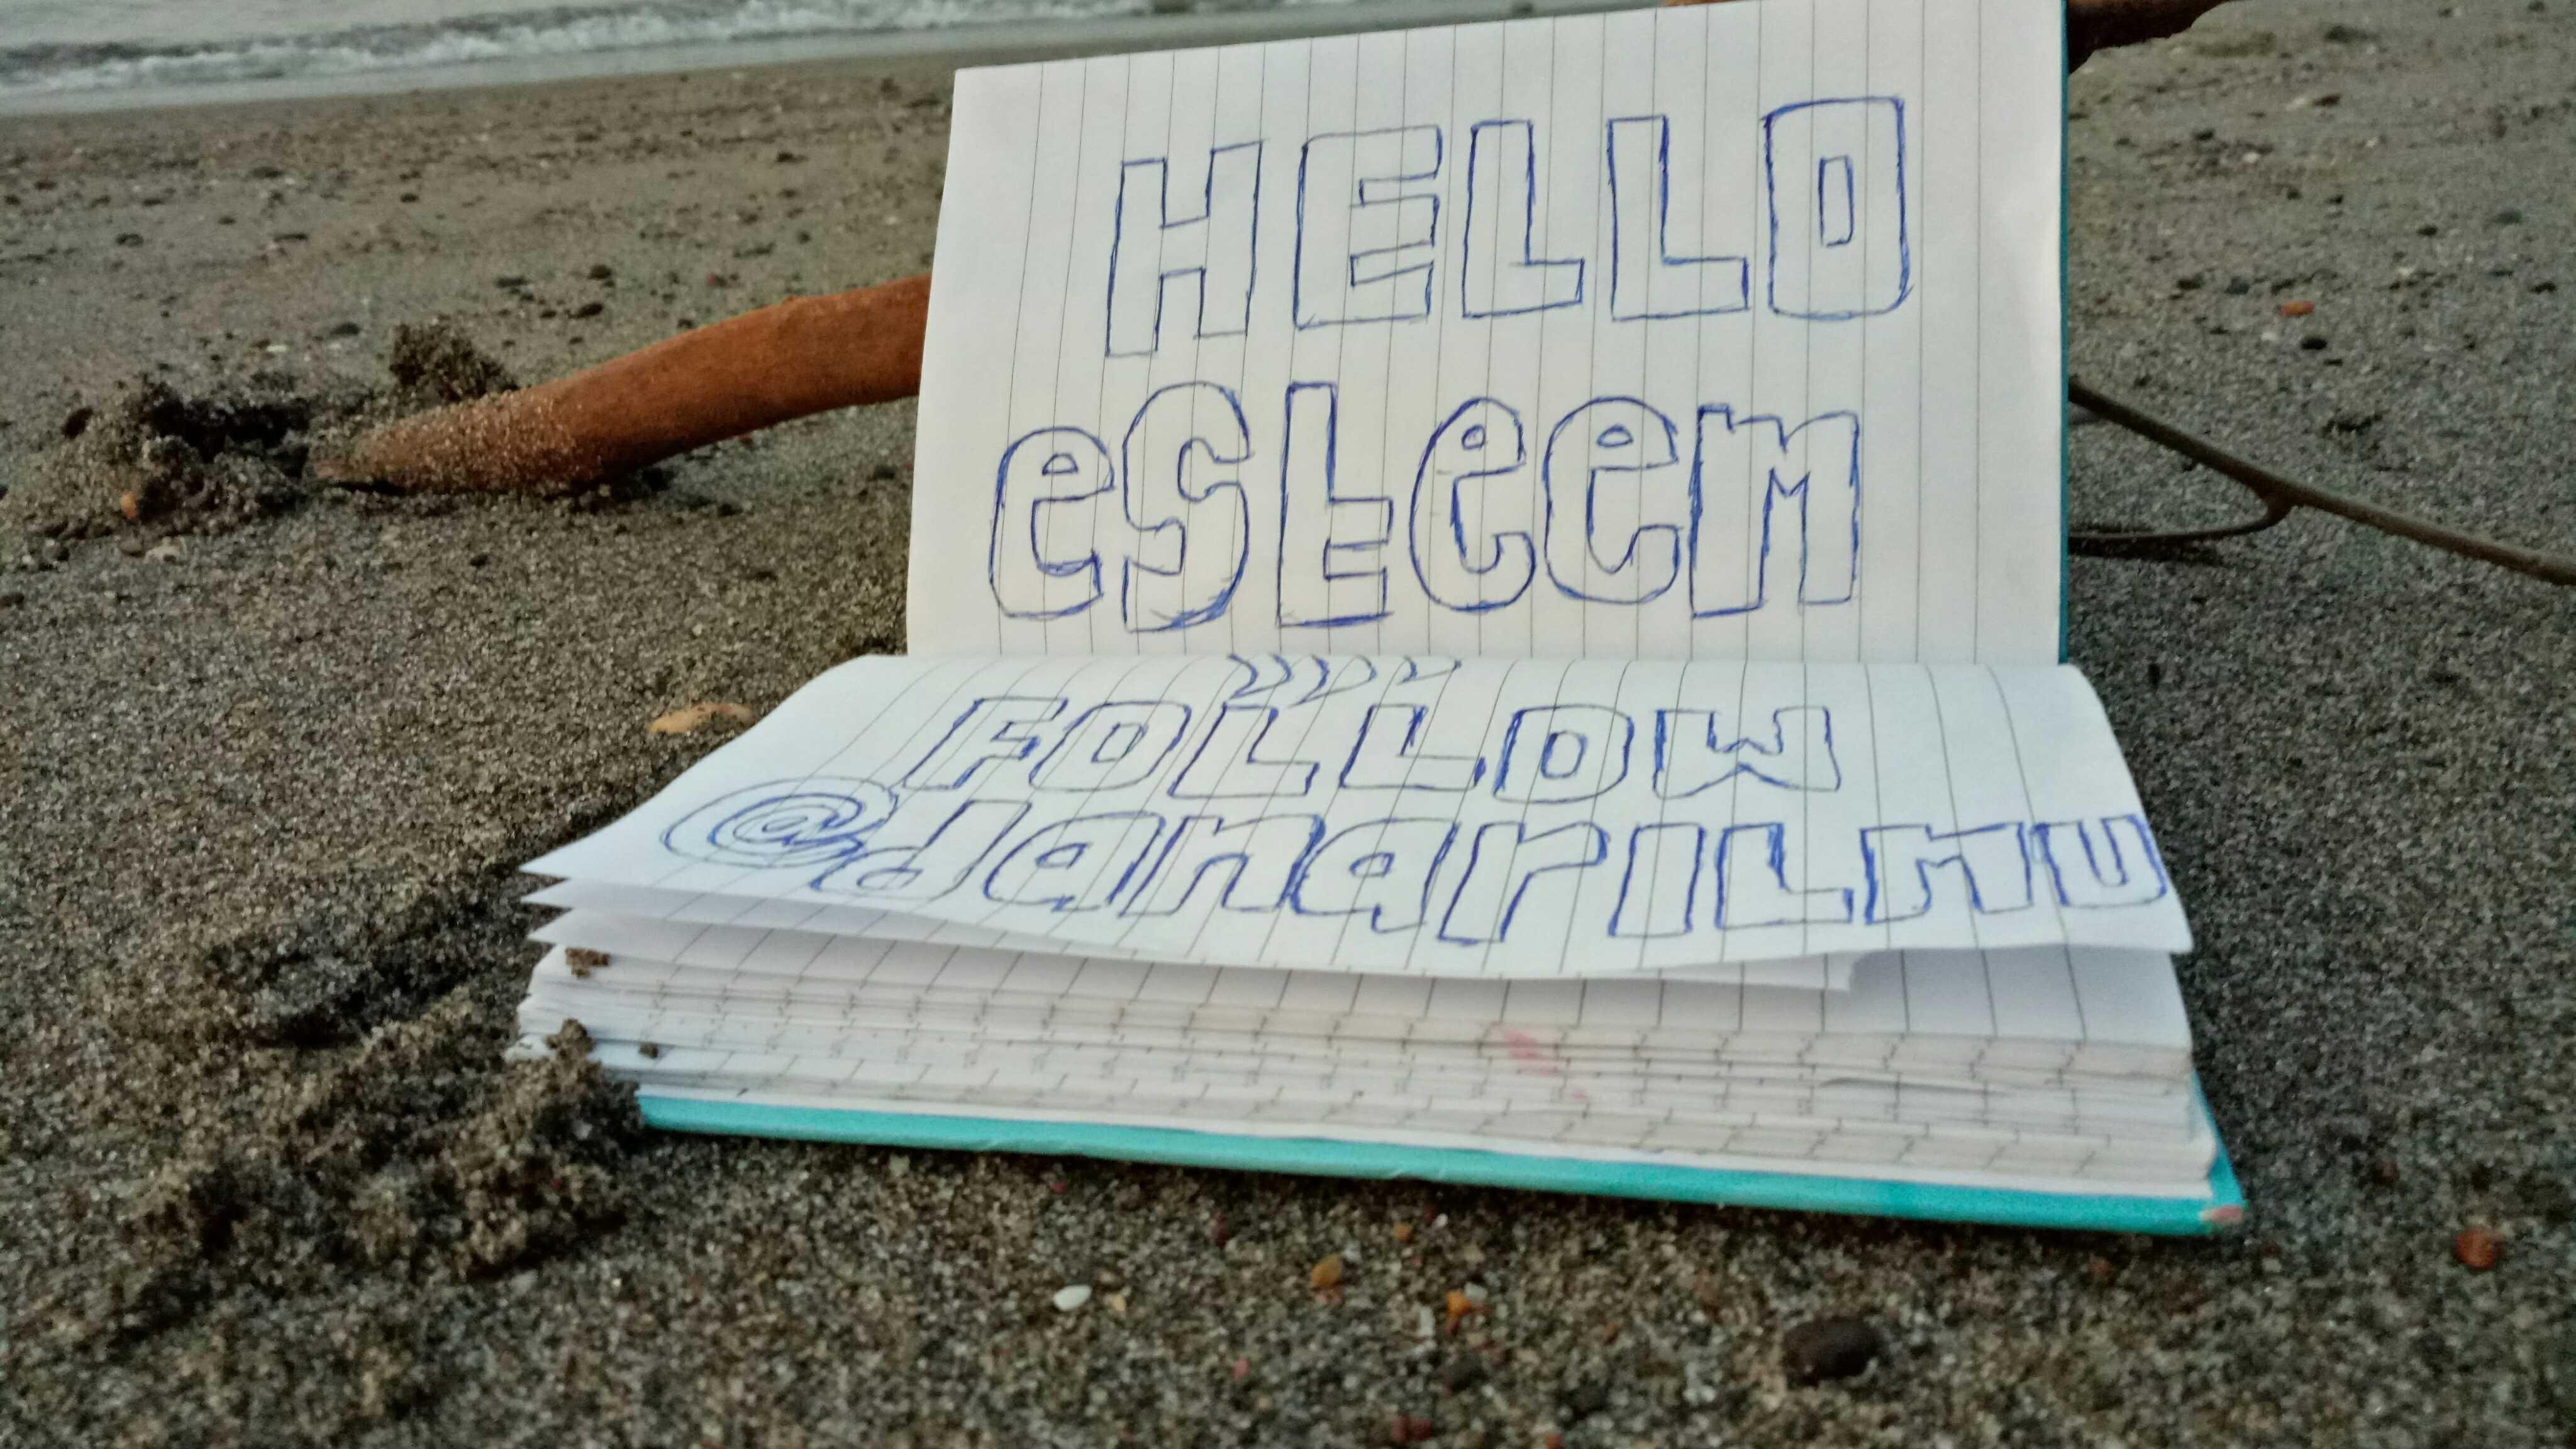 HELLO
esteem
FOLLOW
@danarilmu